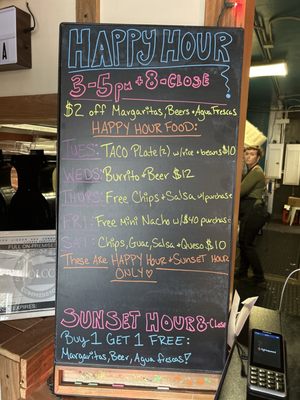 HAPPY HOUR
3-5pm + 8-CLOSE
$2 off Margaritas, Beers + Agua Frescas
HAPPY HOUR FOOD:
TUES: TACO Plate (2) w/rice + beans $10
WEDS: Burrito + Beer $12
THURS: Free Chips + Salsa w/purchase
FRI: Free Mini Nacho w/$40 purchase
SAT: Chips, Guac, Salsa + Queso $10
These Are HAPPY HOUR + SUNSET HOUR
ONLY ♡
SUNSET HOUR 8-Close
Buy 1 GET 1 FREE
Margaritas, Beer, Agua frescas!